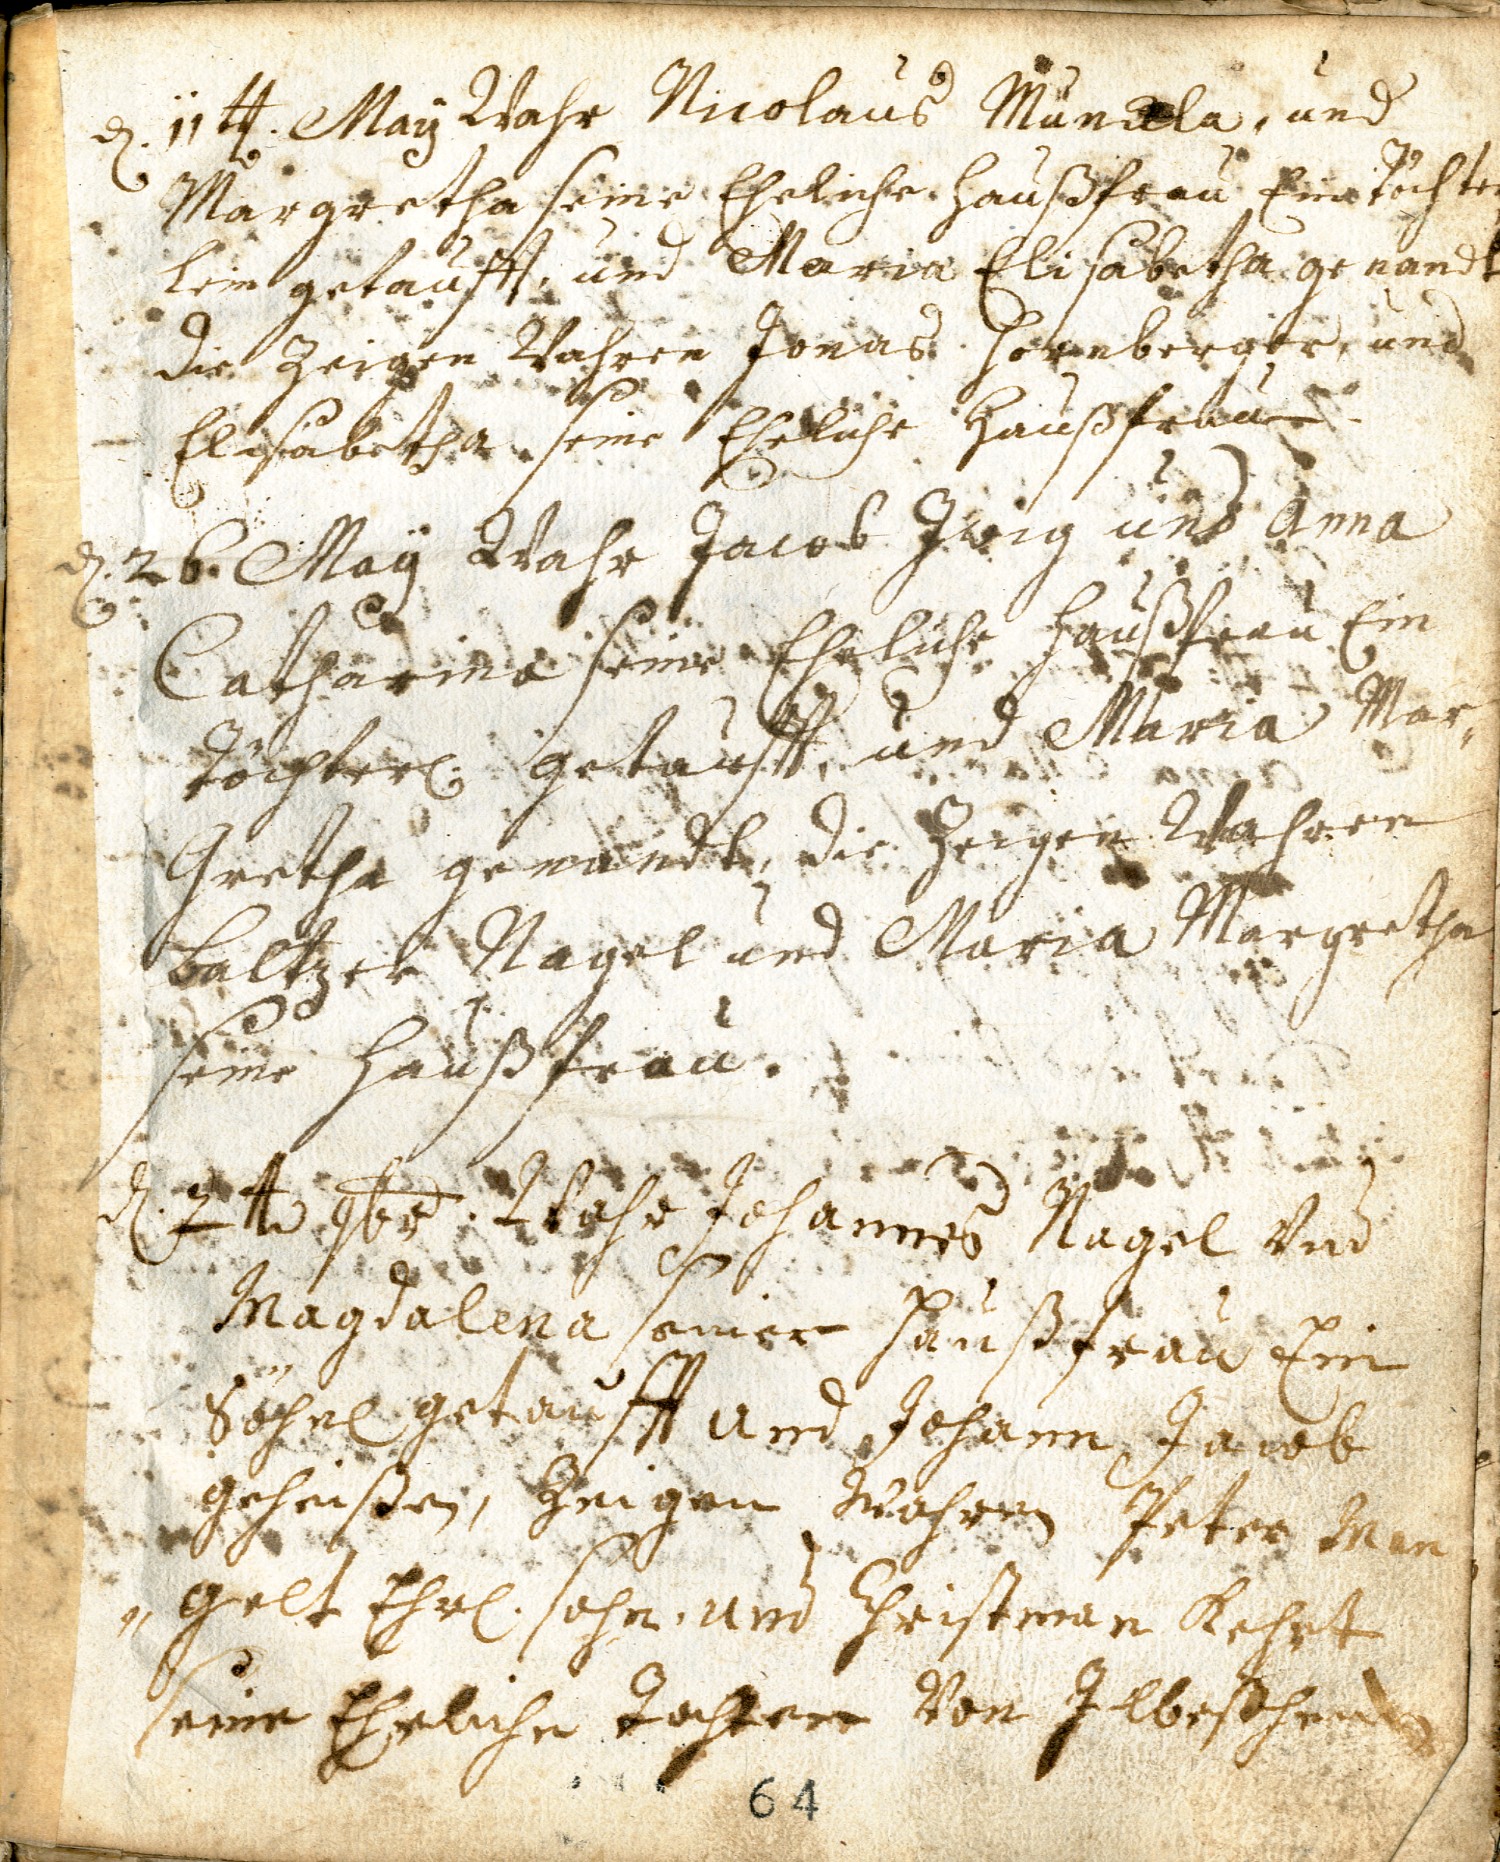 d. 11tt. Maÿ Wahr Nicolaus und
Margretha seine Eheliche Haußfrau Ein töchter
lein getaufft, und Maria Elisabetha genandt
die Zeigen Wahren Jonas Hornberger, und
Elisabetha seine Eheliche Haußfrau
d. 26. Maÿ Wahr Jacob und Anna
Catharina seine Eheliche Haußfrau Ein
töchterl. getaufft, und Maria Mar„
Gretha genandt, die Zeigen Wahren
Baltzer Nagel und Maria Margretha
seine Haußfrau.
d. 2tt 9br. Wahr Johannes Nagel Vnd
Magdalena seiner Haußfrau Ein
Söhnl getaufft und Johann Jacob
geheißen, Zeigen Wahren Peter Man
„ gelt Ehrl. sohn. und Christman Kehrt
seine Eheliche tochter Von Ilbesheim
64